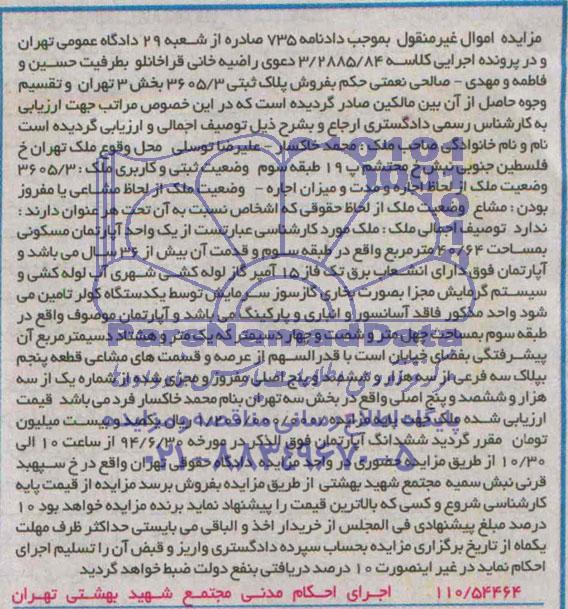 مزایده اموال غیرمنقول بموجب دادنامه ۷۳۵ صادره از شعبه ۲۹ دادگاه عمومی تهران
و در پرونده اجرایی کلاسه ۳/۲۸۸۵/۸۴ دعوی راضیه خانی قراخانلو بطرفیت حسین و
فاطمه و مهدی - صالحی نعمتی حکم بفروش پلاک ثبتی ۳۶۰۵/۳ بخش ۳ تهران و تقسیم
وجوه حاصل از آن بین مالکین صادر گردیده است که در این خصوص مراتب جهت ارزیابی
به کارشناس رسمی دادگستری ارجاع و بشرح ذیل توصیف اجمالی و ارزیابی گردیده است
نام و نام خانوادگی صاحب ملک : محمد خاکسار - علیرضا توسلی محل وقوع ملک تهران خ
فلسطین جنوبی نبش خ محتشم پ ۱۹ طبقه سوم وضعیت ثبتی و کاربری ملک : ۳۶۰۵/۳
وضعیت ملک از لحاظ اجاره و مدت و میزان اجاره - وضعیت ملک از لحاظ مشاعی یا مفروز
بودن : مشاع وضعیت ملک از لحاظ حقوقی که اشخاص نسبت به آن تحت هر عنوان دارند :
ندارد توصیف اجمالی ملک : ملک مورد کارشناسی عبارتست از یک واحد آپارتمان مسکونی
بمساحت ۴۰/۶۴ مترمربع واقع در طبقه سوم و قدمت آن بیش از ۳۶ سال می باشد و
آپارتمان فوق دارای انشعاب برق تک فاز ۱۵ آمپر گاز لوله کشی شهری آب لوله کشی و
سیستم گرمایش مجزا بصورت بخاری گازسوز سرمایش توسط یکدستگاه کولر تامین می
شود واحد مذکور فاقد آسانسور و انباری و پارکینگ می باشد و آپارتمان موصوف واقع در
طبقه سوم بمساحت چهل متر و شصت و چهار دسیمتر که یک متر و هشتاد دسیمترمربع آن
پیشرفتگی بفضای خیابان است با قدرالسهم از عرصه و قسمت های مشاعی قطعه پنجم
بپلاک سه فرعی از سه هزار و ششصد و پنج اصلی مفروز و مجزی شده از شماره یک از سه
هزار و ششصد و پنج اصلی واقع در بخش سه تهران بنام محمد خاکسار فرد می باشد قیمت
ارزیابی شده ملک جهت پایه مزایده ۱/۲۰۰/۰۰۰/۰۰۰ ریال یکصد و بیست میلیون
تومان مقرر گردید ششدانگ آپارتمان فوق الذکر در مورخه ۹۴/۶/۳۰ از ساعت ۱۰ الی
۱۰/۳۰ از طریق مزایده حضوری در واحد مزایده دادگاه حقوقی تهران واقع در خ سپهبد
قرنی نبش سمیه مجتمع شهید بهشتی از طریق مزایده بفروش برسد مزایده از قیمت پایه
کارشناسی شروع و کسی که بالاترین قیمت را پیشنهاد نماید برنده مزایده خواهد بود ۱۰
درصد مبلغ پیشنهادی فی المجلس از خریدار اخذ و الباقی می بایستی حداکثر ظرف مهلت
یکماه از تاریخ برگزاری مزایده بحساب سپرده دادگستری واریز و قبض آن را تسلیم اجرای
احکام نماید در غیر اینصورت ۱۰ درصد دریافتی بنفع دولت ضبط خواهد گردید
۱۱۰/۵۴۴۶۴ اجرای احکام مدنی مجتمع شهید بهشتی تهران
ParsNamadData
پایگاه اطلاع رسانی مناقصه و مزایده
۰۲۱-۸۸۳۴۹۶۷۰-۵